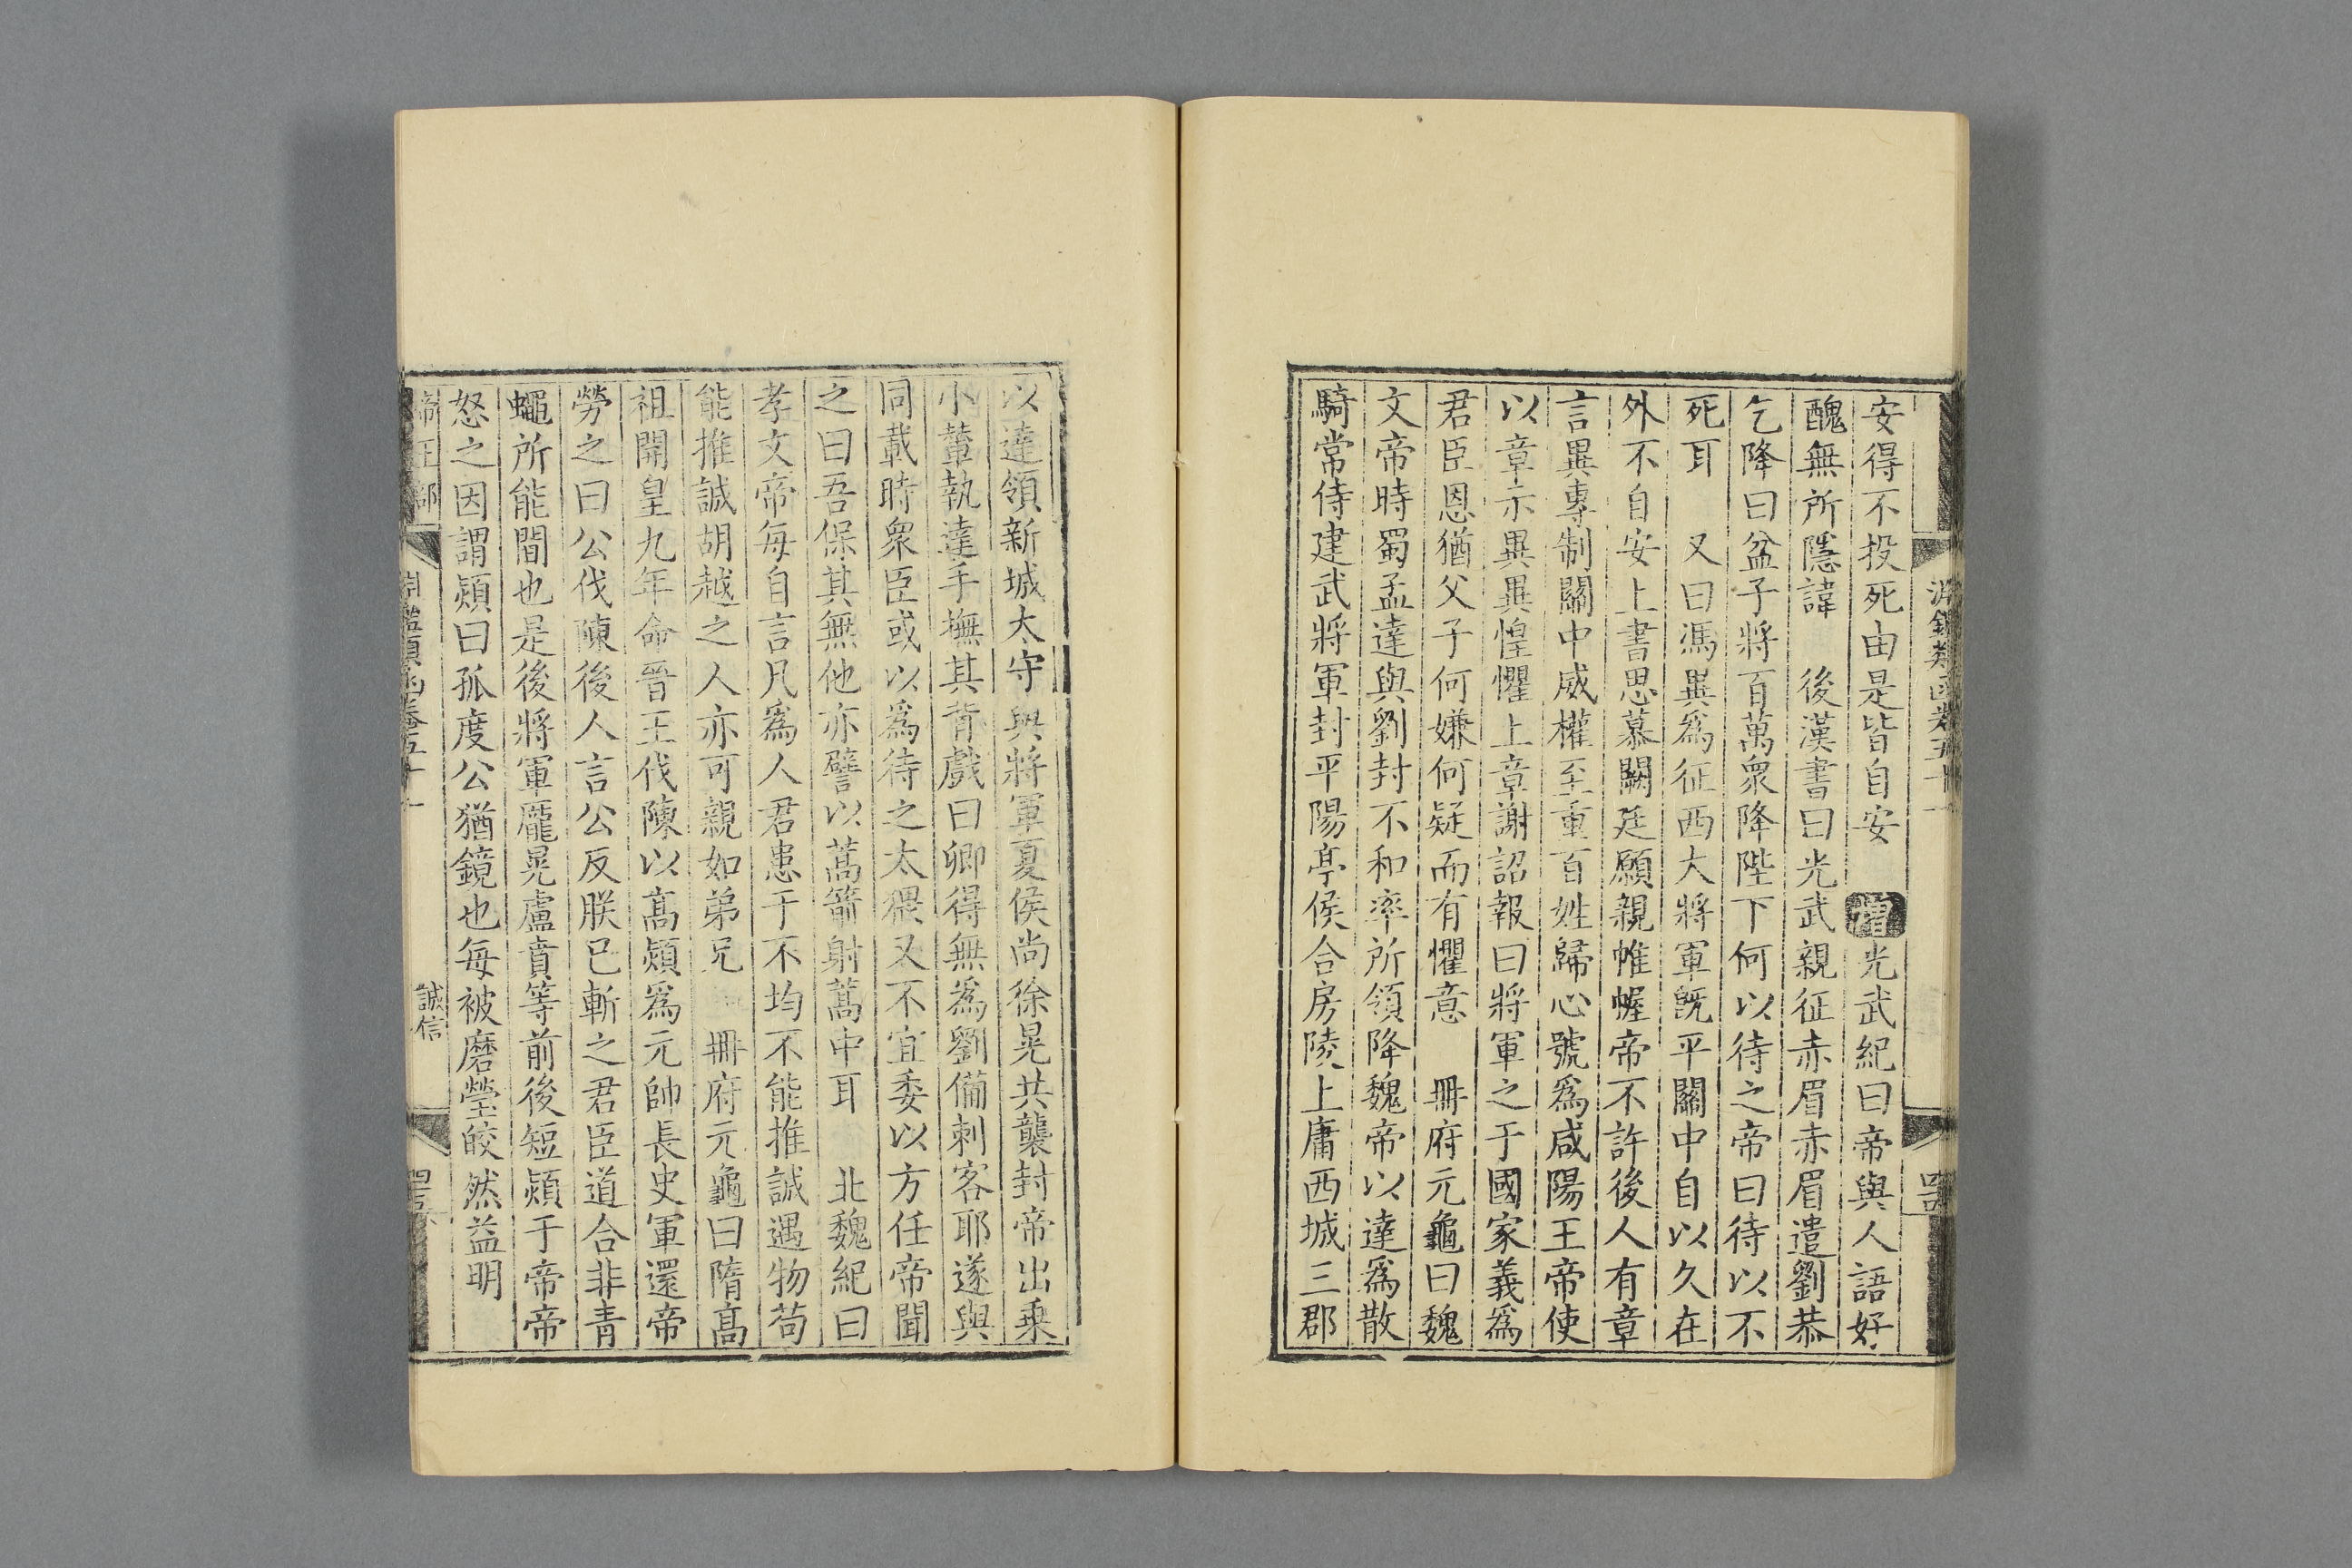 安得不投死由是皆自安　增光武紀曰帝與人語好
醜無所隱諱　後漢書曰光武親征赤眉赤眉遣劉恭
乞降曰盆子將百萬衆降陛下何以待之帝曰待以不
死耳　又曰馮異爲征西大將軍旣平關中自以久在
外不自安上書思慕闕廷願親帷幄帝不許後人有章
言異專制關中威權至重百姓歸心號爲咸陽王帝使
以章示異異惶懼上章謝詔報曰將軍之于國家義爲
君臣恩猶父子何嫌何疑而有懼意　冊府元龜曰魏
文帝時蜀孟達與劉封不和率所領降魏帝以達爲散
騎常侍建武將軍封平陽亭侯合房陵上庸西城三郡
以達領新城太守與將軍夏侯尚徐晃共襲封帝出乗
小輦執達手撫其背戲曰卿得無爲劉備刺客耶遂與
同載時衆臣或以爲待之太猥又不宜委以方任帝聞
之曰吾保其無他亦譬以蒿箭射蒿中耳　北魏紀曰
孝文帝每自言凡爲人君患于不均不能推誠遇物苟
能推誠胡越之人亦可親如弟兄　冊府元龜曰隋髙
祖開皇九年命晉王伐陳以髙熲爲元帥長史軍還帝
勞之曰公伐陳後人言公反朕已斬之君臣道合非青
蠅所能間也是後將軍龐晃盧賁等前後短熲于帝帝
怒之因謂熲曰孤度公猶鏡也每被磨瑩皎然益明
帝王部　淵鑑類函卷五十一　誠信